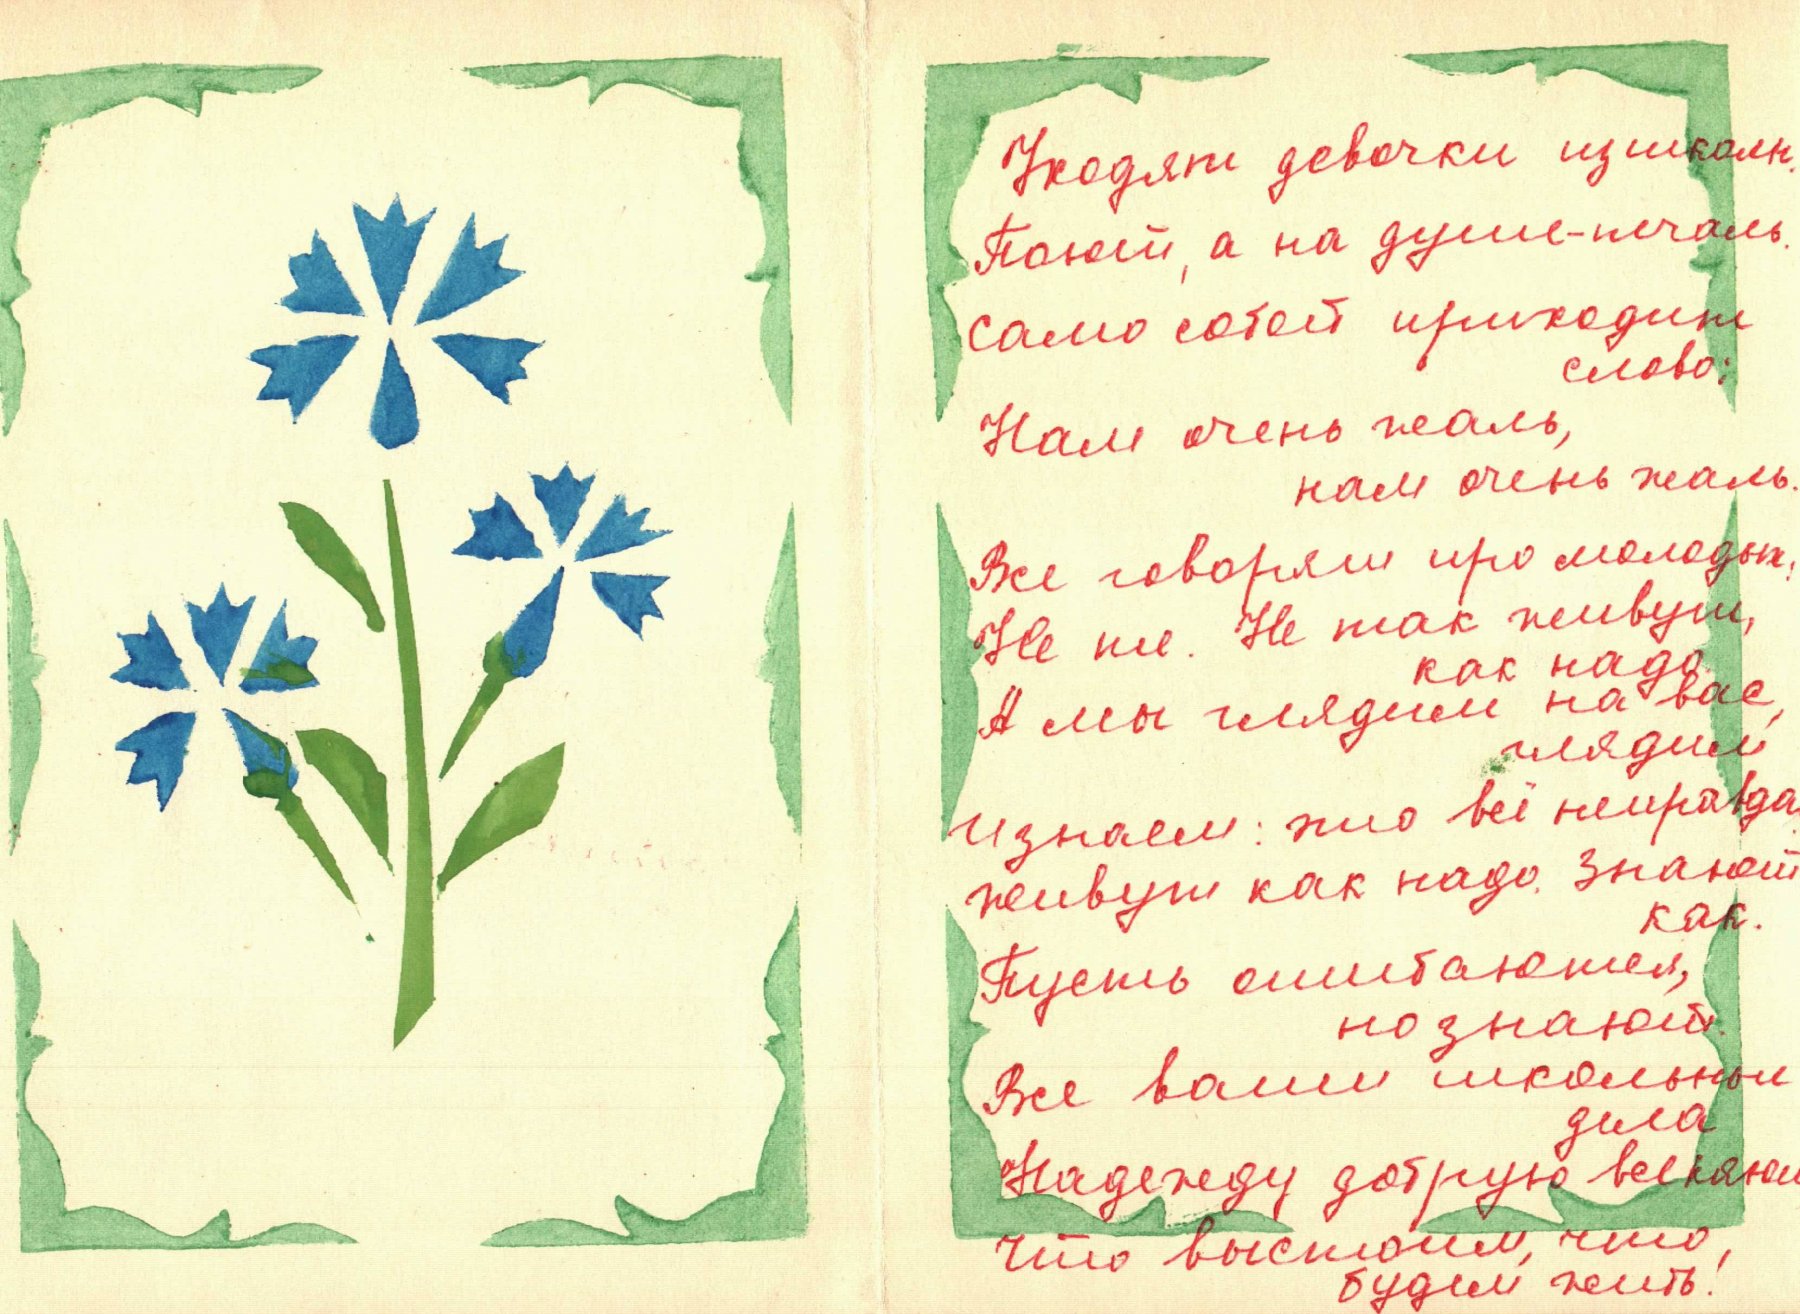 Уходят девочки из школы.
Поют, а на душе-печаль.
Само собой приходит
слово:
Нам очень жаль,
нам очень жаль.
Все говорят про молодых:
Не те. Не так живут,
как надо
А мы глядим на вас,
глядим
И знаем: это всё неправда.
живут как надо. Знают
как.
Пусть ошибаются,
но знают.
Все ваши школьные
дела
Надежду добрую вселяют
Что выстоим, что
будем жить!